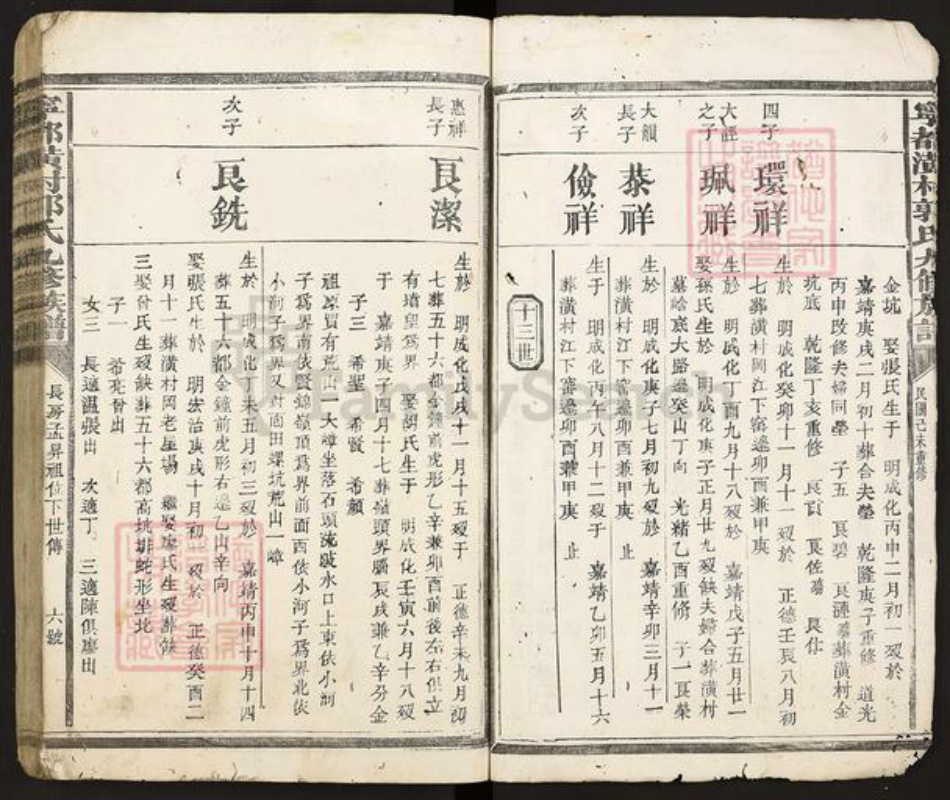 寧都潢村郭氏九修族譜
民國己未重修
金坑　娶張氏生于　明成化丙申二月初一歿於
嘉靖庚戌二月初十葬合夫塋　乾隆庚子重修　道光
丙申改修夫婦同塋　子五　艮碧　艮漣　葬潢村金
坑底　乾隆丁亥重修　艮貢　艮佐　艮作
四子
環祥
生於　明成化癸卯十一月十一歿於　正德壬辰八月初
七葬潢村岡江下窰邊卯酉兼甲庚
之子
珮祥
生於　明成化丁酉九月十八歿於　嘉靖戊子五月廿一
娶孫氏生於　明成化庚子正月廿九歿缺夫婦合葬潢村
墓嵅底大路邊癸山丁向　光緒乙酉重修　子一艮榮
長子
恭祥
生於　明成化庚子七月初九歿於　嘉靖辛卯三月十一
葬潢村江下窰邊卯酉兼甲庚　止
次子
儉祥
生于　明成化丙午八月十二歿于　嘉靖乙卯五月十六
葬潢村江下窰邊卯酉兼甲庚　止
十三世
惠祥
長子
艮潔
生於　明成化戊戌十一月十五歿于　正德辛未九月初
七葬五十六都金鐘前虎形乙辛兼卯酉前後左右俱立
有墻望爲界　娶胡氏生于　明成化壬寅六月十八歿
于　嘉靖庚子四月十七葬嶺頭界腦辰戌兼乙辛分金
子三　希聖　希賢　希顏
祖原買有荒山一大嶂坐落石頭陂水口上東依小河
子爲界南依賢錦嶺頂爲界前面西依小河子爲界北依
小河子爲界又對面田螺坑荒山一嶂
次子
艮銑
生於　明成化丁未五月初三歿於　嘉靖丙申十月十四
葬五十六都金鐘前虎形右邊乙山辛向
娶張氏生於　明宏治庚戌十月初一歿於　正德癸酉二
月十一葬潢村岡老星場　繼娶廖氏生歿葬缺
三娶曾氏生歿缺葬五十六都高坑排蛇形坐北
子一　希亮曾出
女三　長適溫張出　次適丁　三適陳俱廖出
寧都潢村郭氏九修族譜
長房孟昇祖位下世傳
六號
FamilySearch